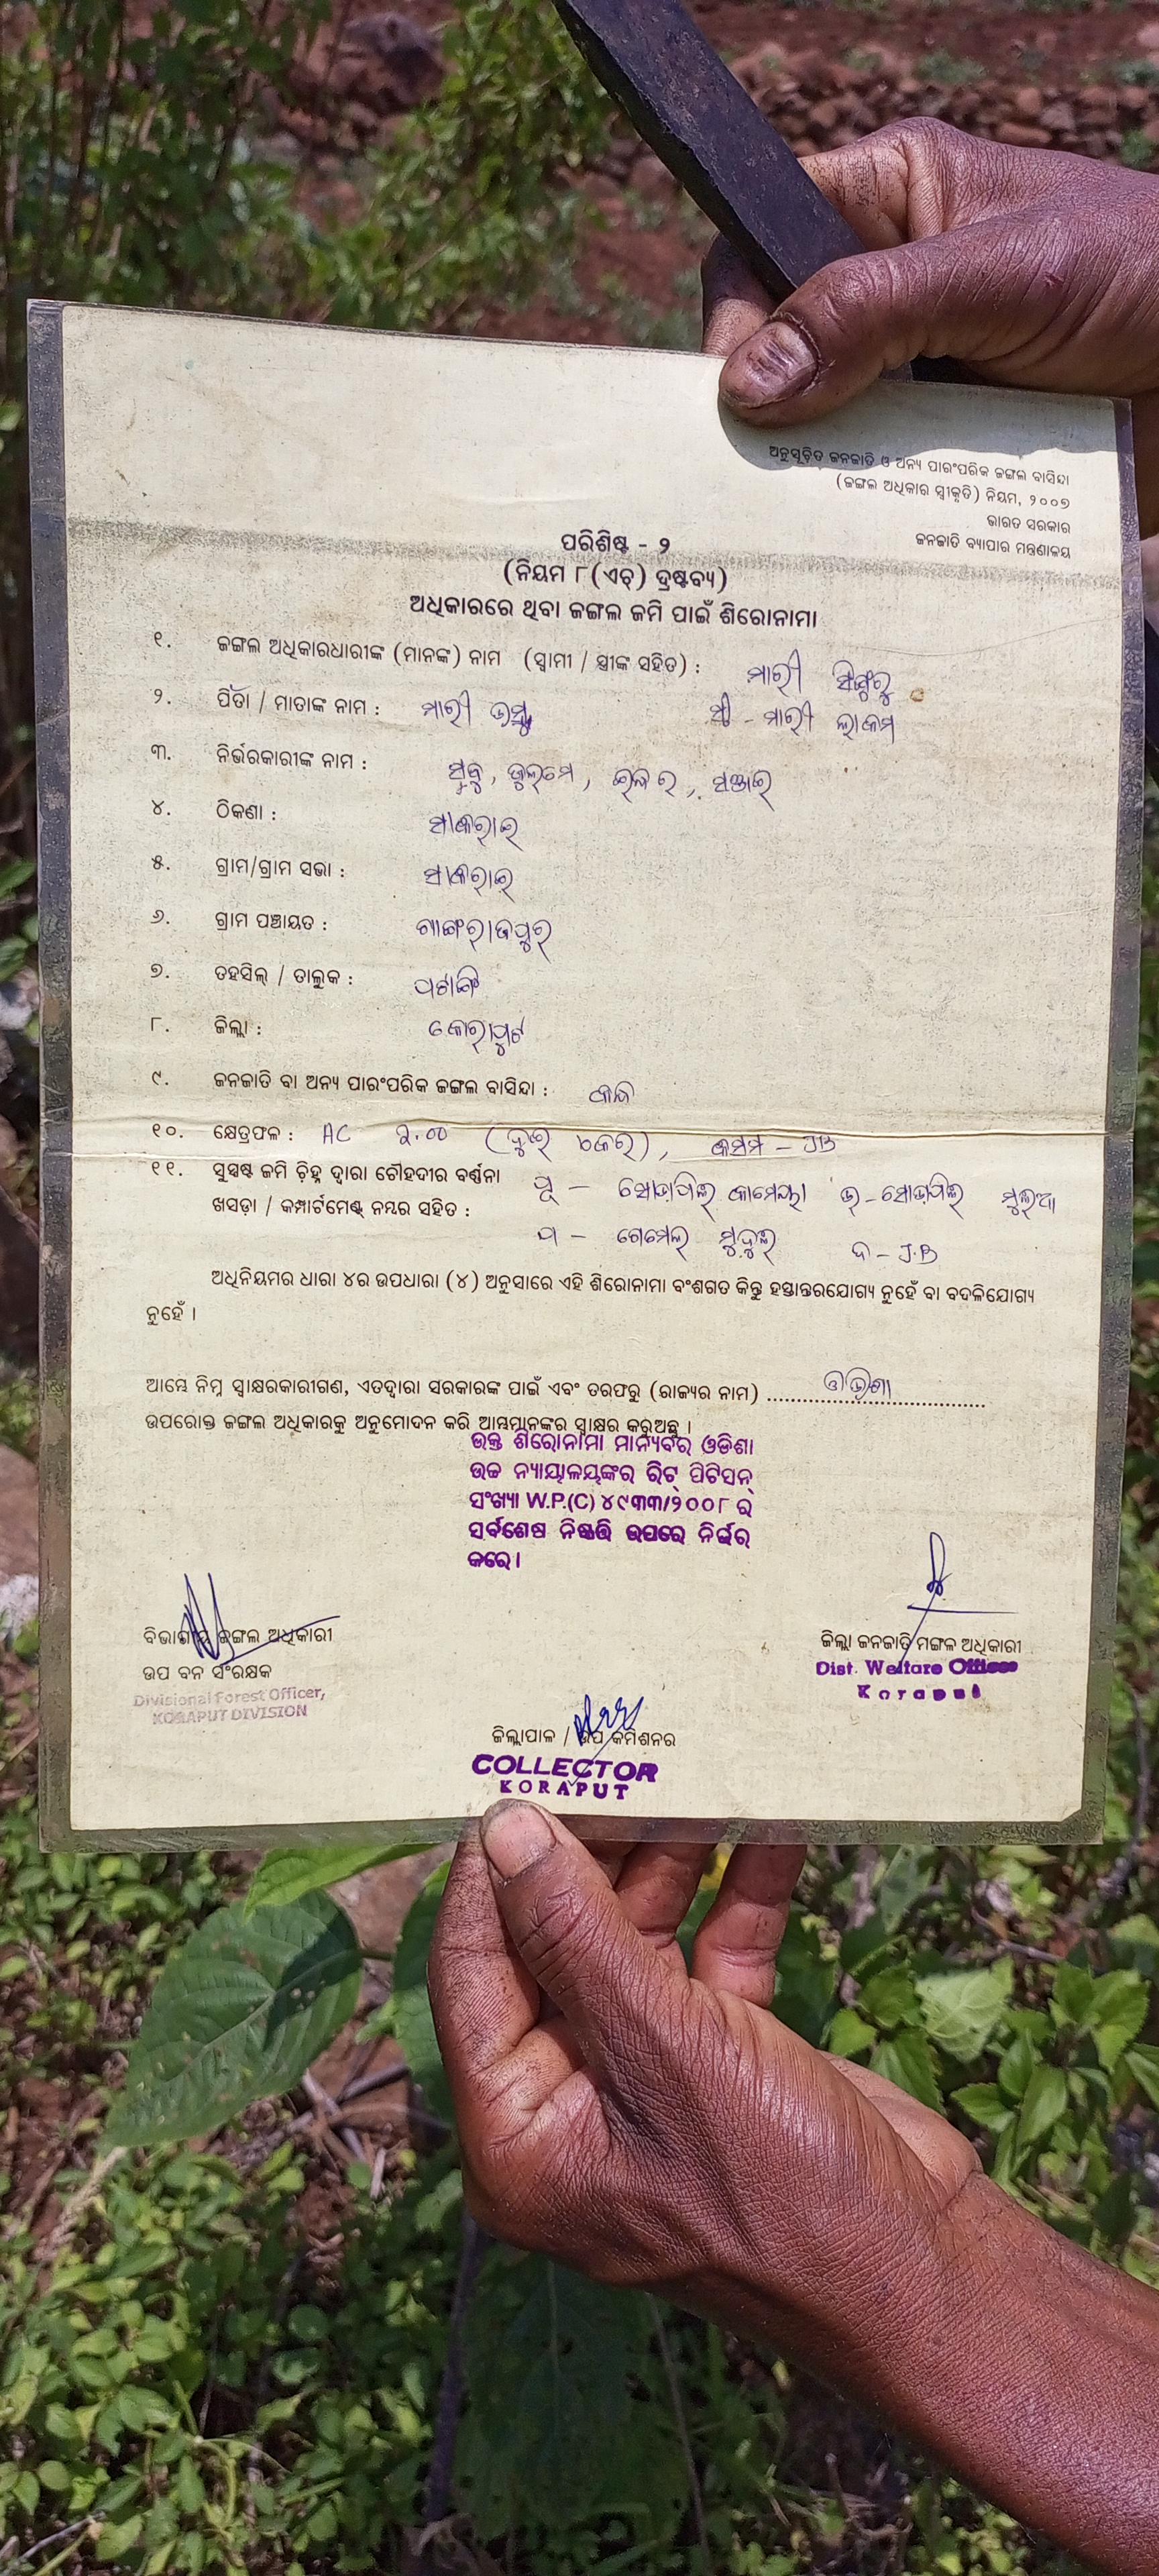 ଅନୁସୂଚିତ ଜନଜାତି ଓ ଅନ୍ୟ ପାରଂପରିକ ଜଙ୍ଗଲ ବାସିନ୍ଦା
(ଜଙ୍ଗଲ ଅଧିକାର ସ୍ୱୀକୃତି) ନିୟମ, ୨୦୦୭
ଭାରତ ସରକାର
ଜନଜାତି ବ୍ୟାପାର ମନ୍ତ୍ରଣାଳୟ
ପରିଶିଷ୍ଟ - ୨
(ନିୟମ ୮(ଏଚ୍) ଦ୍ରଷ୍ଟବ୍ୟ)
ଅଧିକାରରେ ଥିବା ଜଙ୍ଗଲ ଜମି ପାଇଁ ଶିରୋନାମା
୧. ଜଙ୍ଗଲ ଅଧିକାରଧାରୀଙ୍କ (ମାନଙ୍କ) ନାମ (ସ୍ୱାମୀ / ସ୍ତ୍ରୀଙ୍କ ସହିତ) : ମାରୀ
୨. ପିତା / ମାତାଙ୍କ ନାମ : ମାରୀ ସ୍ତ୍ରୀ - ମାରୀ ଲାକମ
୩. ନିର୍ଭରକାରୀଙ୍କ ନାମ :
୪. ଠିକଣା : ସାକରାଇ
୫. ଗ୍ରାମ/ଗ୍ରାମ ସଭା : ସାକରାଇ
୬. ଗ୍ରାମ ପଞ୍ଚାୟତ : ଗାଙ୍ଗରାଜପୁର
୭. ତହସିଲ୍ / ତାଲୁକ : ପଟାଙ୍ଗି
୮. ଜିଲ୍ଲା : କୋରାପୁଟ
୯. ଜନଜାତି ବା ଅନ୍ୟ ପାରଂପରିକ ଜଙ୍ଗଲ ବାସିନ୍ଦା :
୧୦. କ୍ଷେତ୍ରଫଳ : AC ୨.୦୦ (ଦୁଇ ଏକର), କିସମ - JB
୧୧. ସୁସ୍ପଷ୍ଟ ଜମି ଚିହ୍ନ ଦ୍ୱାରା ଚୌହଦୀର ବର୍ଣ୍ଣନା ପୂ - ସୋଡ଼ାପିଲ୍ କାମେୟା ଉ - ସୋଡ଼ାପିଲ୍
ଖସଡ଼ା / କମ୍ପାର୍ଟମେଣ୍ଟ ନମ୍ବର ସହିତ : ପ - ଗେମେଲ୍ ମୁଦୁଲି ଦ - J.B
ଅଧିନିୟମର ଧାରା ୪ର ଉପଧାରା (୪) ଅନୁସାରେ ଏହି ଶିରୋନାମା ବଂଶଗତ କିନ୍ତୁ ହସ୍ତାନ୍ତରଯୋଗ୍ୟ ନୁହେଁ ବା ବଦଳିଯୋଗ୍ୟ
ନୁହେଁ ।
ଆମ୍ଭେ ନିମ୍ନ ସ୍ୱାକ୍ଷରକାରୀଗଣ, ଏତଦ୍ୱାରା ସରକାରଙ୍କ ପାଇଁ ଏବଂ ତରଫରୁ (ରାଜ୍ୟର ନାମ) ଓଡିଶା
ଉପରୋକ୍ତ ଜଙ୍ଗଲ ଅଧିକାରକୁ ଅନୁମୋଦନ କରି ଆମ୍ଭମାନଙ୍କର ସ୍ୱାକ୍ଷର କରୁଅଛୁ ।
ଉକ୍ତ ଶିରୋନାମା ମାନ୍ୟବର ଓଡିଶା
ଉଚ୍ଚ ନ୍ୟାୟାଳୟଙ୍କର ରିଟ୍ ପିଟିସନ୍
ସଂଖ୍ୟା W.P.(C) ୪୯୩୩/୨୦୦୮ ର
ସର୍ବଶେଷ ନିଷ୍ପତ୍ତି ଉପରେ ନିର୍ଭର
କରେ ।
ବିଭାଗୀୟ ଜଙ୍ଗଲ ଅଧିକାରୀ
ଉପ ବନ ସଂରକ୍ଷକ
Divisional Forest Officer,
KORAPUT DIVISION
ଜିଲ୍ଲା ଜନଜାତି ମଙ୍ଗଳ ଅଧିକାରୀ
Dist. Welfare Officer
Koraput
ଜିଲ୍ଲାପାଳ / ଉପ କମିଶନର
COLLECTOR
KORAPUT